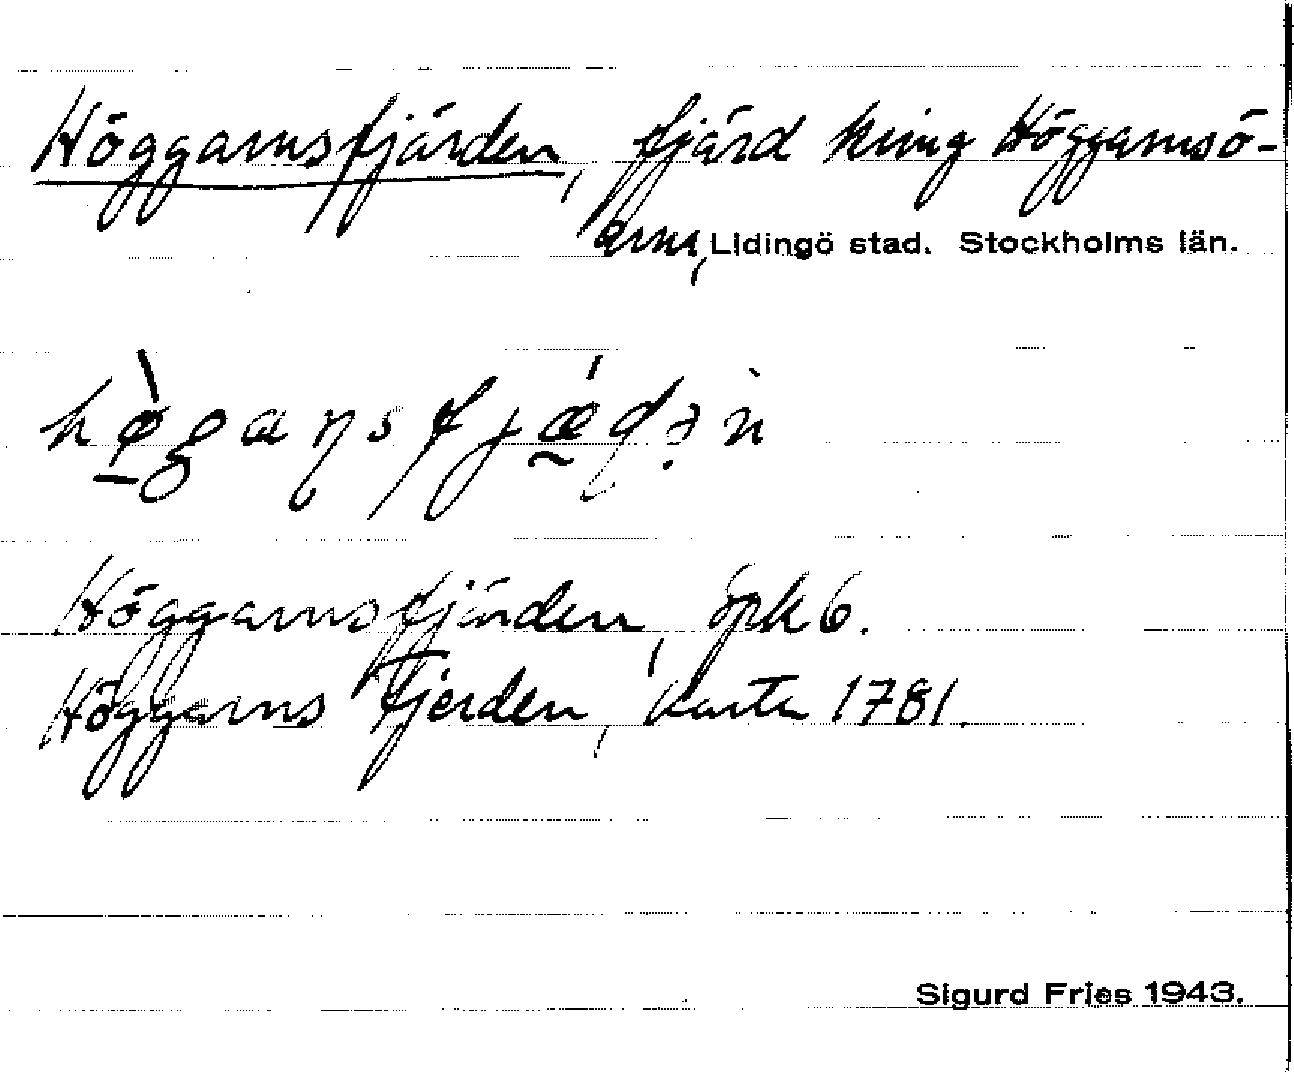 Höggarnsfjärden, fjärd kring Höggarnsö-
arna, Lidingö stad. Stockholms län.
hø̀gaɳsfjǽɖən
Höggarnsfjärden, Spk 6.
Höggarns Fjerden, Karta 1781.
Sigurd Fries 1943.